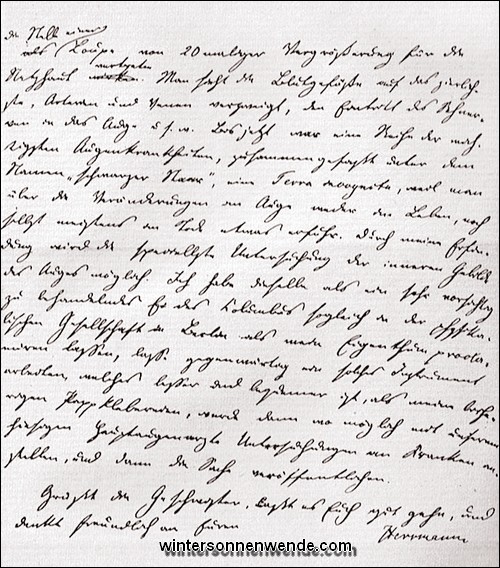 die Stelle einer
als Loupe von 20maliger Vergrößerung für die
vertreten
Netzhaut wirken. Man sieht die Blutgefäße auf das zierlich-
ste, Arterien und Venen verzweigt, den Eintritt des Sehner-
ven in das Auge u. s. w. Bis jetzt war eine Reihe der wich-
tigsten Augenkrankheiten, zusammengefaßt unter dem
Namen „schwarzer Staar“, eine Terra incognita, weil man
über die Veränderungen im Auge weder im Leben, noch
selbst meistens im Tode etwas erfuhr. Durch meine Erfin-
dung wird die speciellste Untersuchung der inneren Gebilde
des Auges möglich. Ich habe dieselbe als ein sehr vorsichtig
zu behandelndes Ei des Columbus sogleich in der physika-
lischen Gesellschaft in Berlin als mein Eigenthum procla-
miren lassen, lasse gegenwärtig ein solches Instrument
arbeiten, welches besser und bequemer ist, als meine bishe-
rigen Pappklebereien, werde dann wo möglich mit unserem
hiesigen Hauptaugenarzte Untersuchungen an Kranken an-
stellen, und dann die Sache veröffentlichen.
Grüßt die Geschwister, laßt es Euch gut gehn, und
denkt freundlich an Euren
Herrmann
wintersonnenwende.com